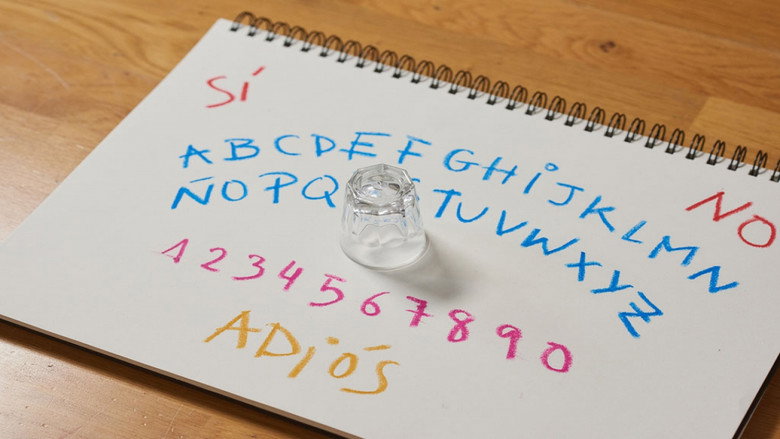 SÍ
NO
A B C D E F G H i J K L M N
Ñ O P Q T U V W X Y Z
1 2 3 4 5 6 7 8 9 0
ADiÓS